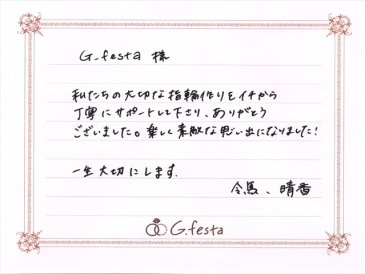 G.festa 様
私たちの大切な指輪作りをイチから
丁寧にサポートして下さり、ありがとう
ございました。楽しく素敵な思い出になりました!
一生大切にします。
令馬、晴香
G.festa